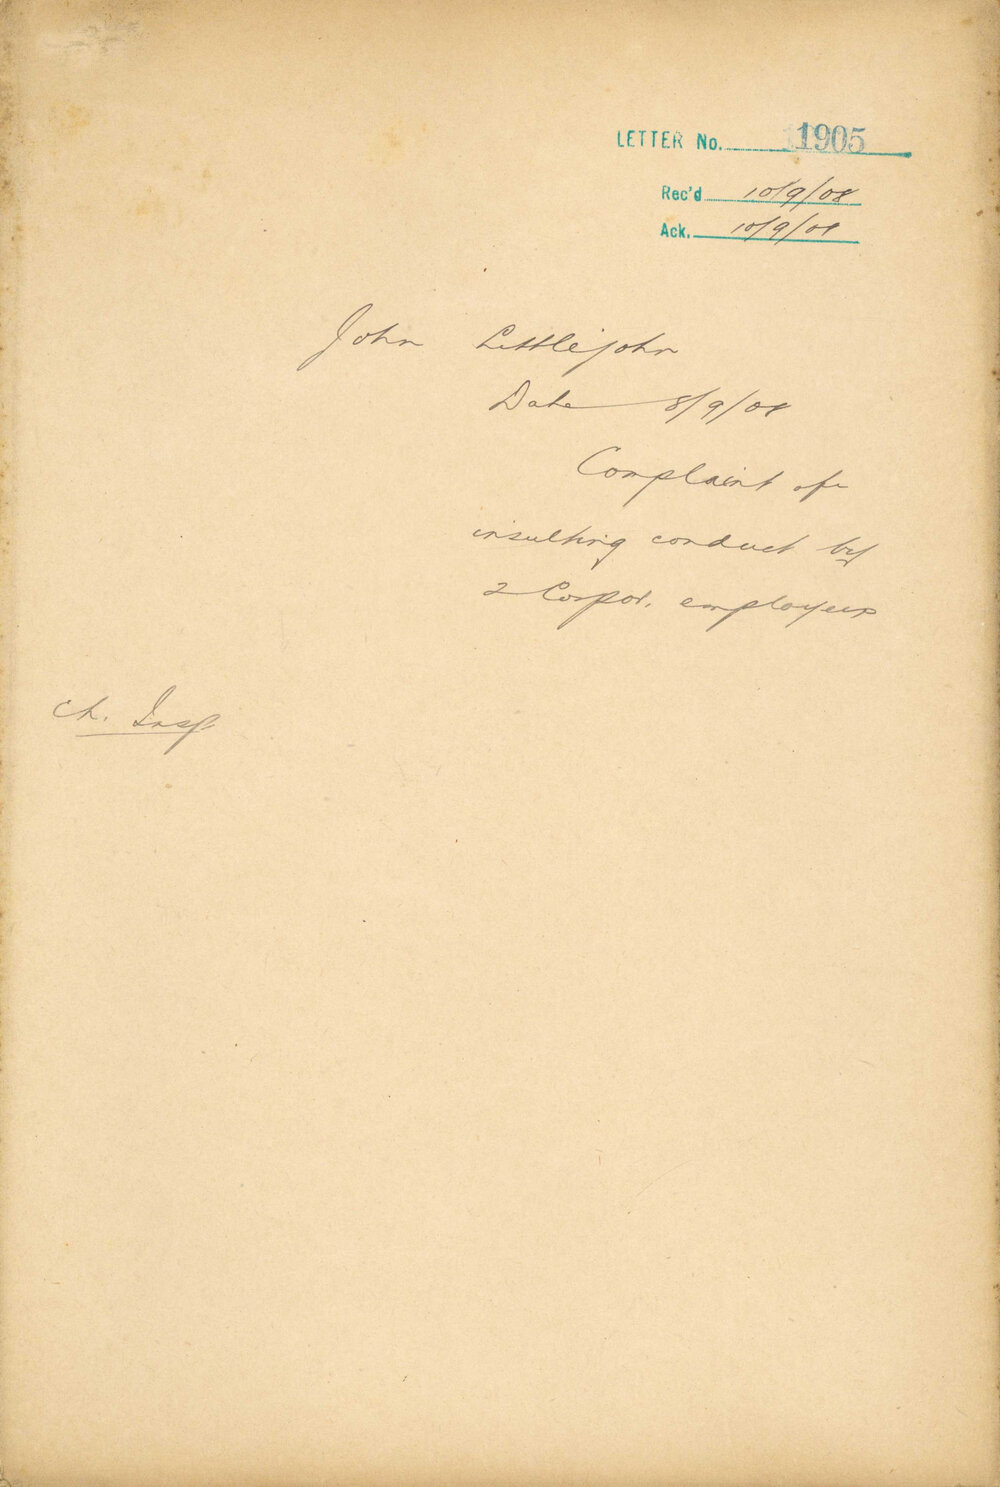 LETTER No. 1905
Rec'd 10/9/08
Ack. 10/9/08
John Littlejohn
Date 8/9/08
Complaint of
insulting conduct by
2 Corpor. employees
Ch. Insp